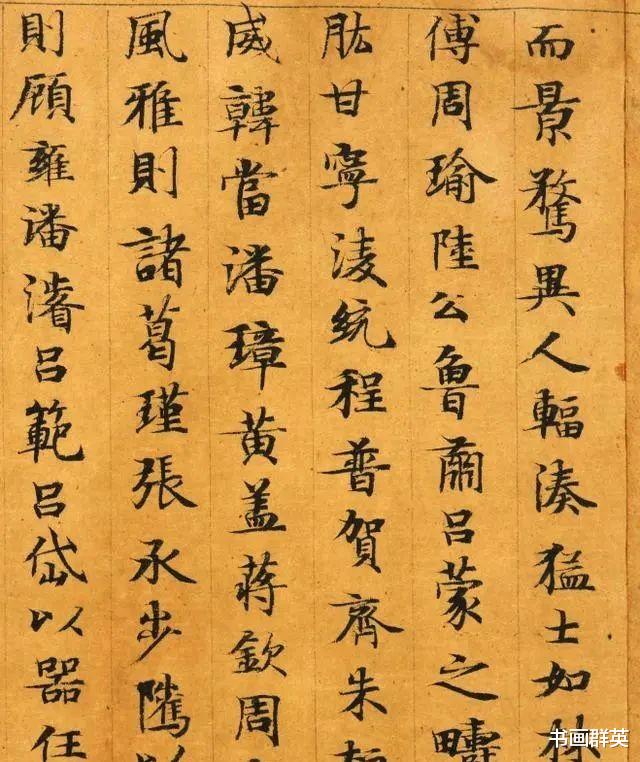 而景騖異人輻湊猛士如林
傅周瑜陸公魯肅呂蒙之疇
肱甘寧淩統程普賀齊朱
威韓當潘璋黄盖蔣欽周
風雅則諸葛瑾張承步隲以
則顧雍潘濬呂範呂岱以器任
书画群英